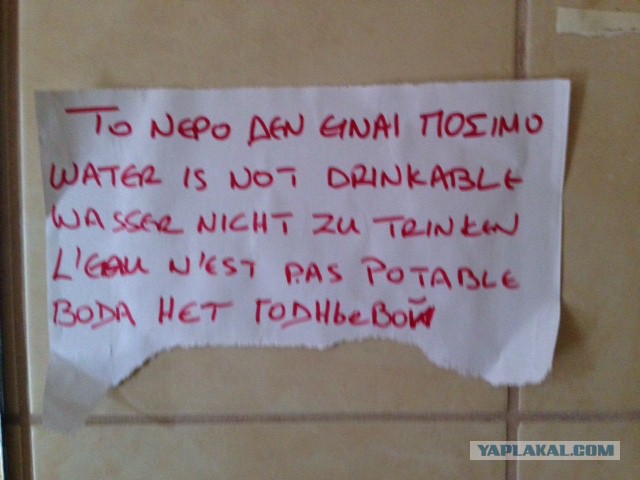 ΤΟ ΝΕΡΟ ΔΕΝ ΕΙΝΑΙ ΠΟΣΙΜΟ
WATER IS NOT DRINKABLE
WASSER NICHT ZU TRINKEN
L'EAU N'EST PAS POTABLE
BODA HET ГОДНЬЕВОЙ
YAPLAKAL.COM